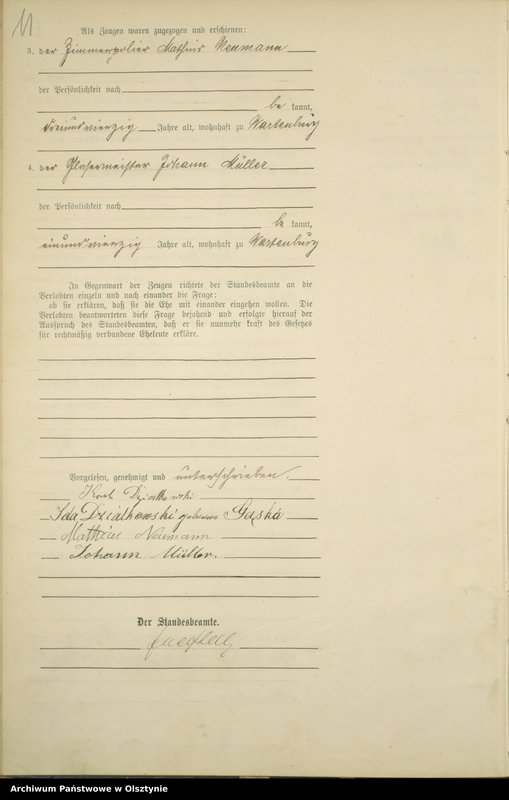 11
Als Zeugen waren zugezogen und erschienen:
3. der Zimmerpolier Mathius Neumann
der Persönlichkeit nach
be kannt,
dreiundvierzig Jahre alt, wohnhaft zu Wartenburg
4. der Glasermeister Johann Müller
der Persönlichkeit nach
be kannt,
einundvierzig Jahre alt, wohnhaft zu Wartenburg
In Gegenwart der Zeugen richtete der Standesbeamte an die
Verlobten einzeln und nach einander die Frage:
ob sie erklären, daß sie die Ehe mit einander eingehen wollen. Die
Verlobten beantworteten diese Frage bejahend und erfolgte hierauf der
Ausspruch des Standesbeamten, daß er sie nunmehr kraft des Gesetzes
für rechtmäßig verbundene Eheleute erkläre.
Vorgelesen, genehmigt und unterschrieben.
Karl Dzialkowski
Ida Dzialkowski geborene Gaska
Mathias Neumann
Johann Müller.
Der Standesbeamte.
Archiwum Państwowe w Olsztynie